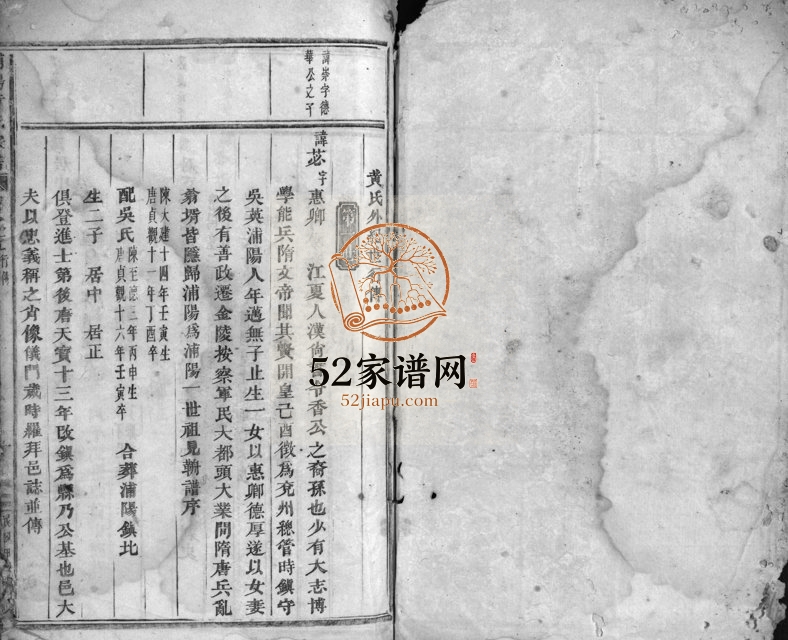 諱崇字德
華公之子
黃氏外
傳
諱苾字惠卿 江夏人漢尚令香公之裔孫也少有大志博
學能兵隋文帝聞其賢開皇己酉徵為兗州總管時鎮守
吳英浦陽人年邁無子止生一女以惠卿德厚遂以女妻
之後有善政遷金陵按察軍民大都頭大業間隋唐兵亂
翁壻皆隱歸浦陽為浦陽一世祖見勅譜序
陳大建十四年壬寅生
唐貞觀十一年丁酉卒
配吳氏陳至德三年丙申生
唐貞觀十六年壬寅卒 合葬浦陽鎮北
生二子 居中 居正
俱登進士第後唐天寶十三年改鎮為縣乃公基也邑大
夫以忠義稱之肖像儀門歲時羅拜邑誌並傳
52家谱网
52jiapu.com